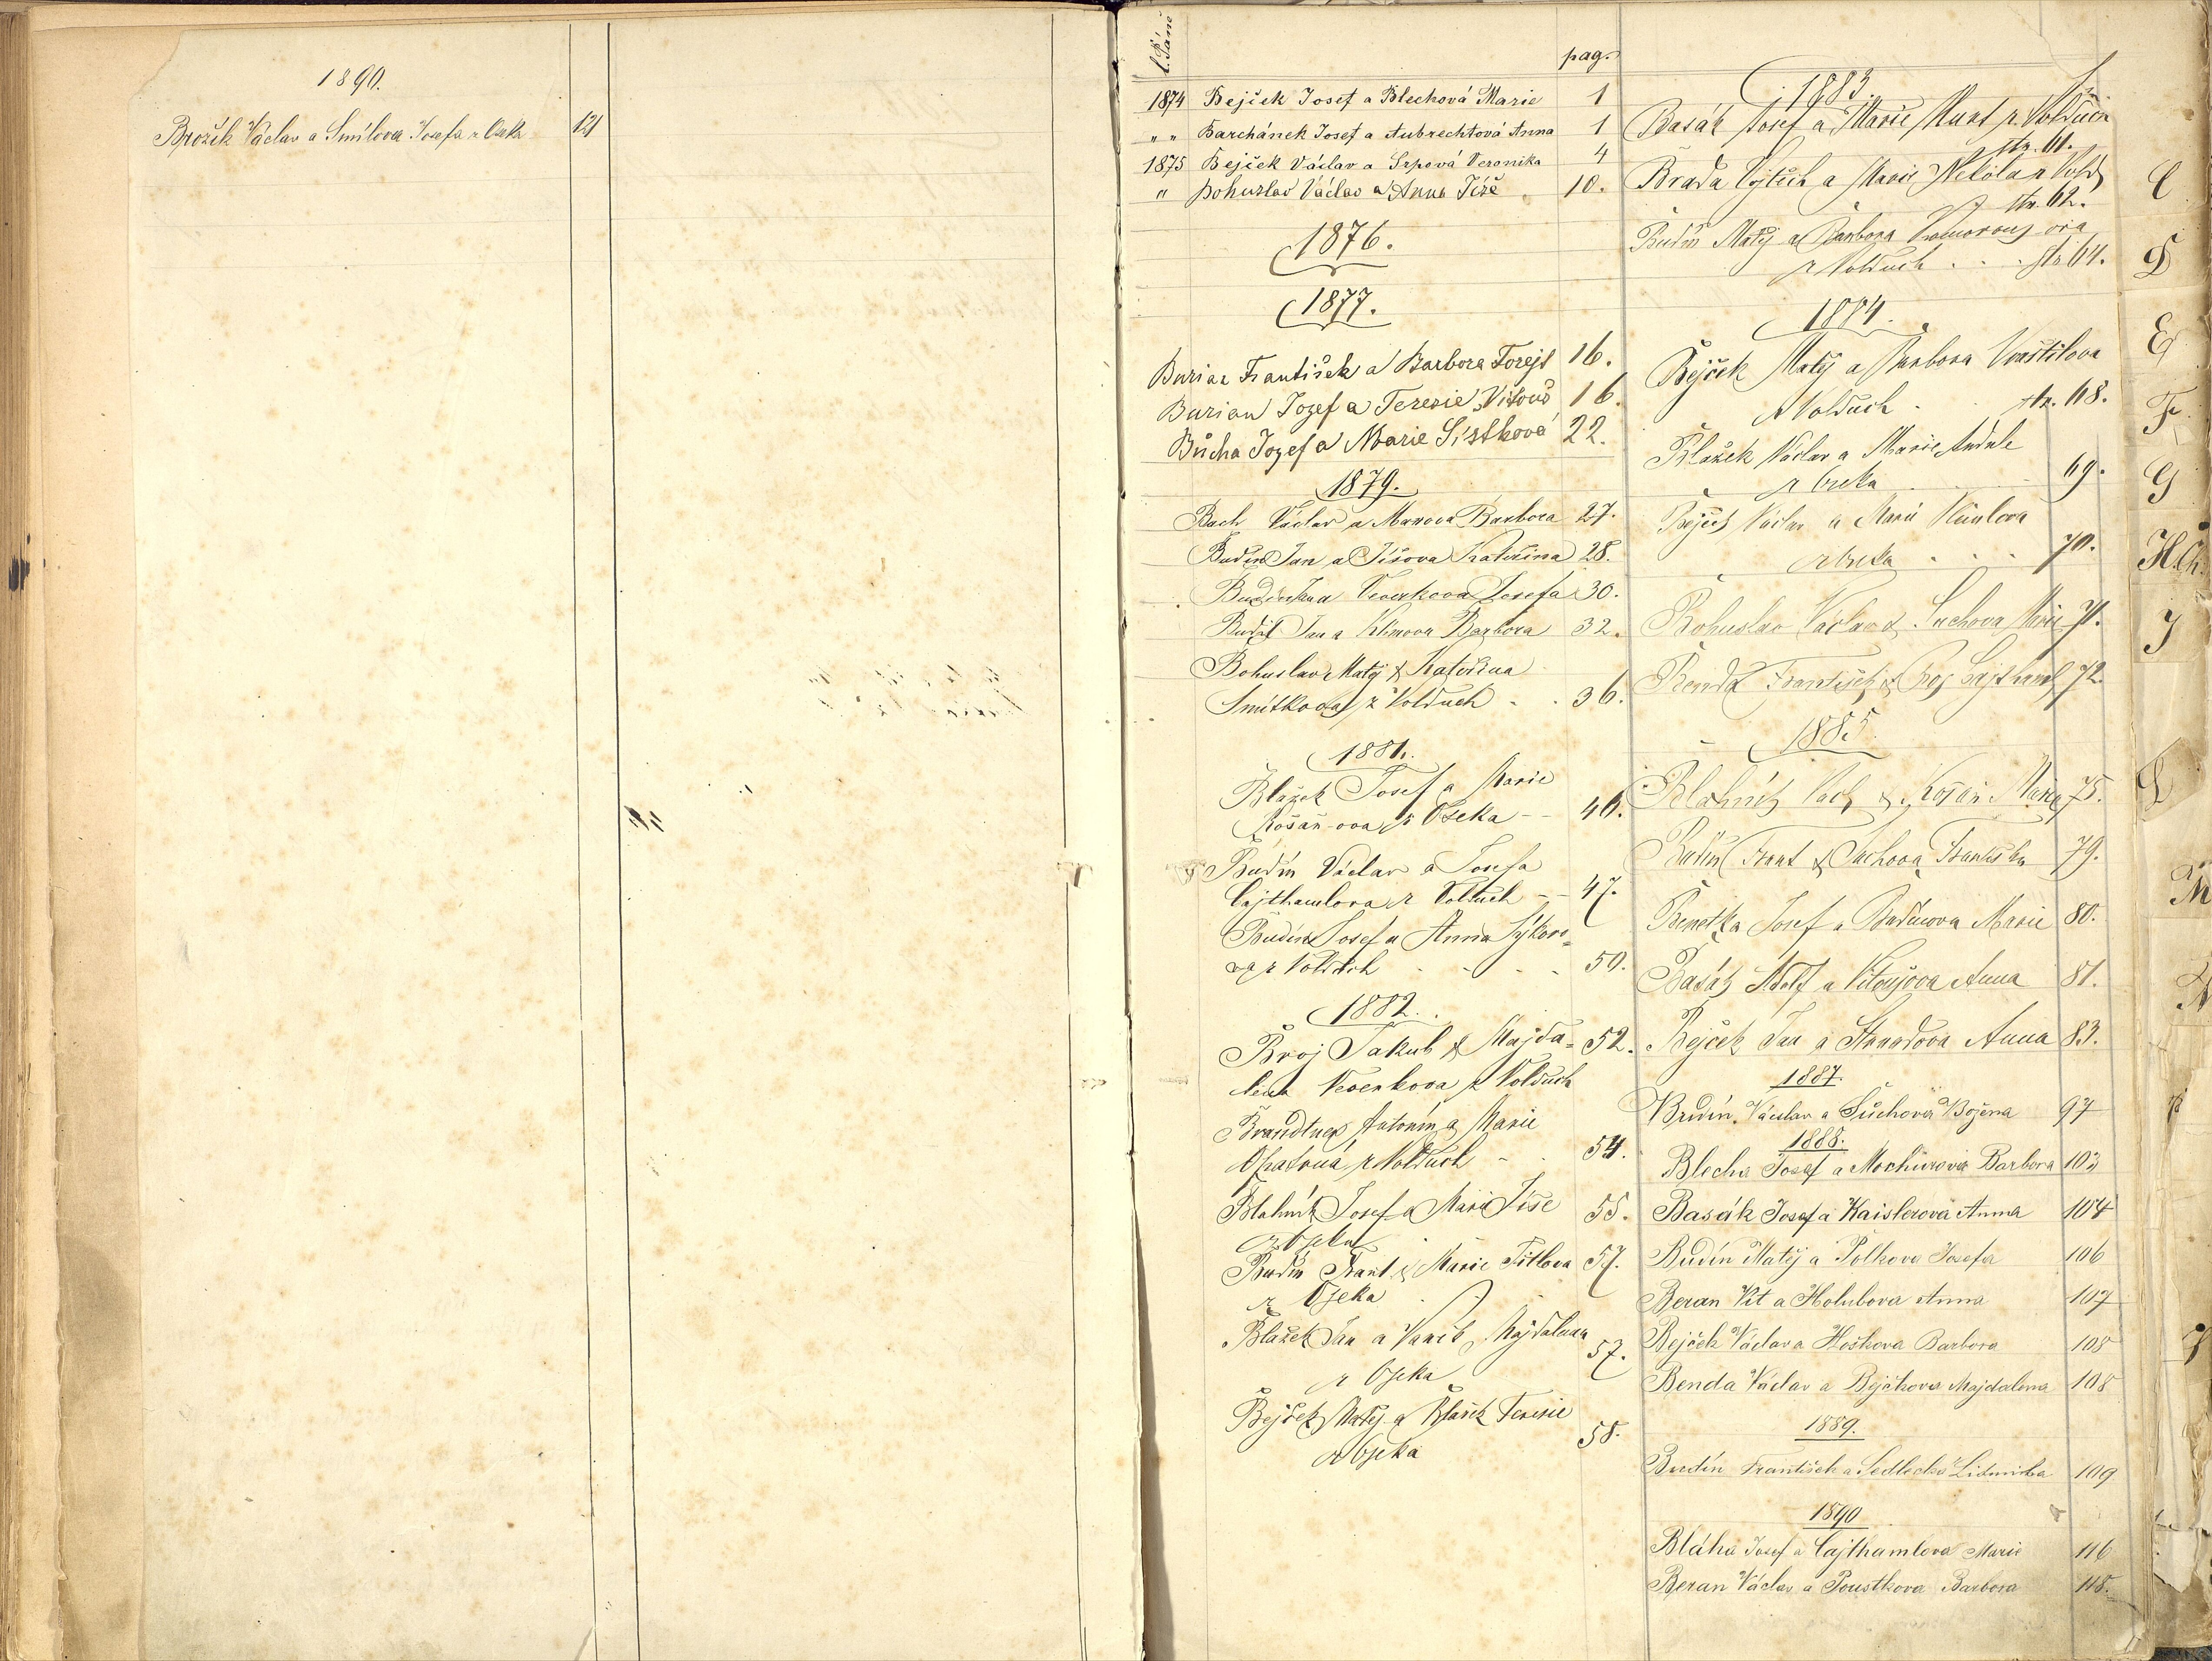 1890.
Brožík Václav a Smílova Josefa z Oseka 121
l. Páně
pag.
1874 Bejček Josef a Blechová Marie 1
" " Barchánek Josef a Aubrechtová Anna 1
1875 Bejček Václav a Srpová Veronika 4
" Bohuslav Václav a Anna Jíše 10.
1876.
1877.
Burian František a Barbora Forejt 16.
Burian Jozef a Terezie Vitouš 16.
Bůcha Jozef a Marie Sístková 22.
1879.
Bach Václav a Barbora 27.
Budín Jan a Jíšova Kateřina 28.
Veverkova Josefa 30.
Budil Jan a Klimova Barbora 32.
Bohuslav Matěj & Kateřina
Smítkova z Volduch . . 36.
1881.
Blažek Josef a Marie
Košař-ova z Oseka - - 46.
Budín Václav a Josefa
Cajthamlova z Volduch - - 47.
Budín Josef a Anna Sýkoro=
va z Volduch . . . 50.
1882.
Broj Jakub & Majda= 52.
lena Veverkova z Volduch
Brandtner Antonín a Marie
Opatrná z Volduch - . 54.
Blahník Josef a Marie Jíše 55.
z Oseka
Budín Frant. & Marie Titlova 57.
z Oseka
Blažek Jan a Majdalena
57.
z Oseka
Bejček Matěj a Terezie
58.
z Oseka
1883.
Basák Josef a Marie z Volduch
str. 61.
Brada Vojtěch a Marie Nikola z Vold
str. 62.
Budín Matěj a Barbora Komorous ova
z Volduch . . . str 64.
1884.
Bejček Matěj a Barbora Vraštilova
z Volduch . str. 68.
Blažek Václav a Marie
z Oseka 69.
Bejček Václav a Marie
z Oseka . . . 70.
Bohuslav Václav & Suchova Marie 71.
Benda František & Cajthaml 72.
1885.
Blahník Václ. & Košař Marie 75.
Budín Frant & Suchova Františka 79.
Benetka Josef a Budínova Marie 80.
Basák Adolf a Vitoušova Anna 81.
Bejček Jan a Strnadova Anna 83.
1887.
Budín Václav a Suchova Božena 97
1888.
Blecha Josef a Mochurova Barbora 103
Basák Josef a Kaislerova Anna 104
Budín Matěj a Polkova Josefa 106
Beran Vít a Holubova Anna 107
Bejček Václav a Hoškova Barbora 108
Benda Václav a Bejčkova Majdalena 108
1889.
Budín František a Sedlecká Lidmila 109
1890
Bláha Josef a Cajthamlova Marie 116
Beran Václav a Poustkova Barbora 118.
C
D
E
F
G
H.Ch.
I
L
M
N
P